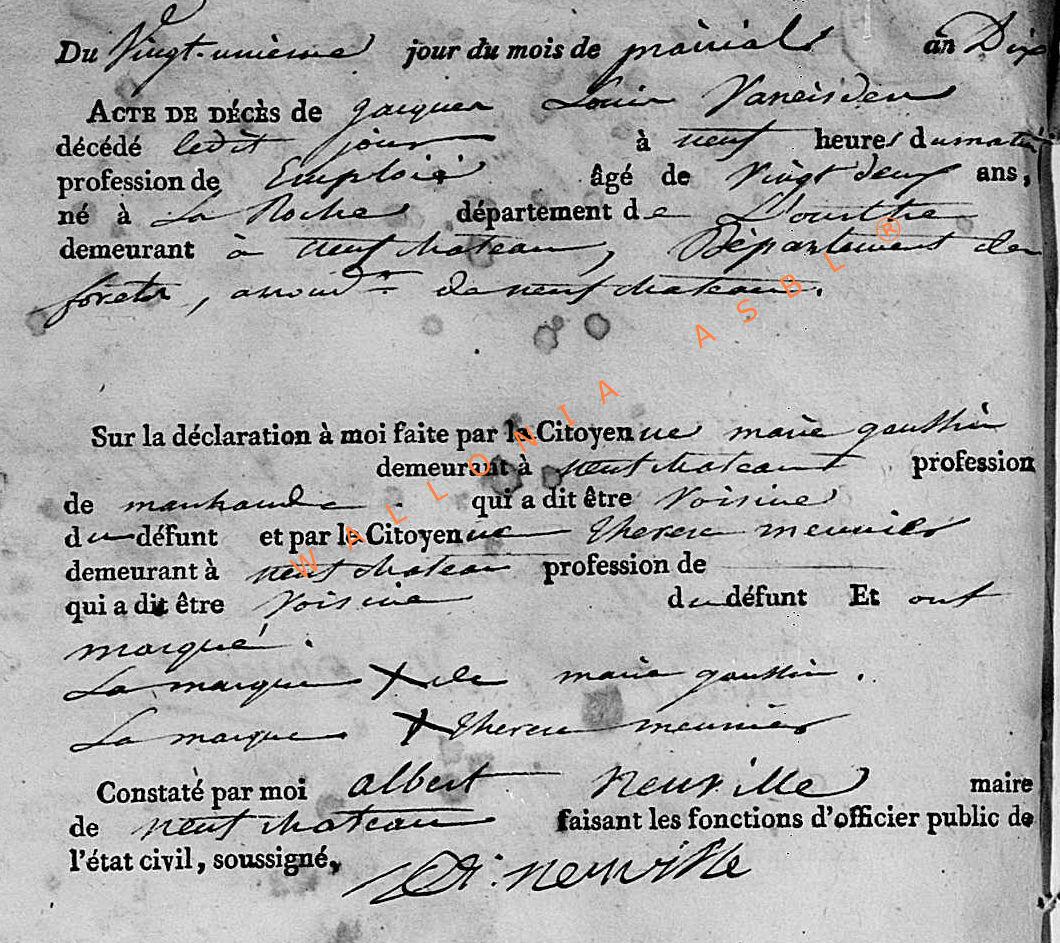 Du Vingt-unième jour du mois de prairial an Dix
ACTE DE DÉCÈS de Jacques Louis Vaneisden
décédé ledit jour à neuf heures du matin
profession de Emploié âgé de Vingt deux ans,
né à La Roche département de L'ourthe
demeurant à neufchateau, Département des
forets, arrondt de neufchateau.
Sur la déclaration à moi faite par la Citoyenne marie gaussin
demeurant à neufchateau profession
de marchande qui a dit être Voisine
du défunt et par le Citoyenne therese meunier
demeurant à neufchateau profession de
qui a dit être Voisine du défunt Et ont
marqué.
La marque X de marie gaussin.
La marque X therese meunier
Constaté par moi albert Neuville maire
de neufchateau faisant les fonctions d'officier public de
l'état civil, soussigné,
A. neuville
WALLONIA ASBL ®